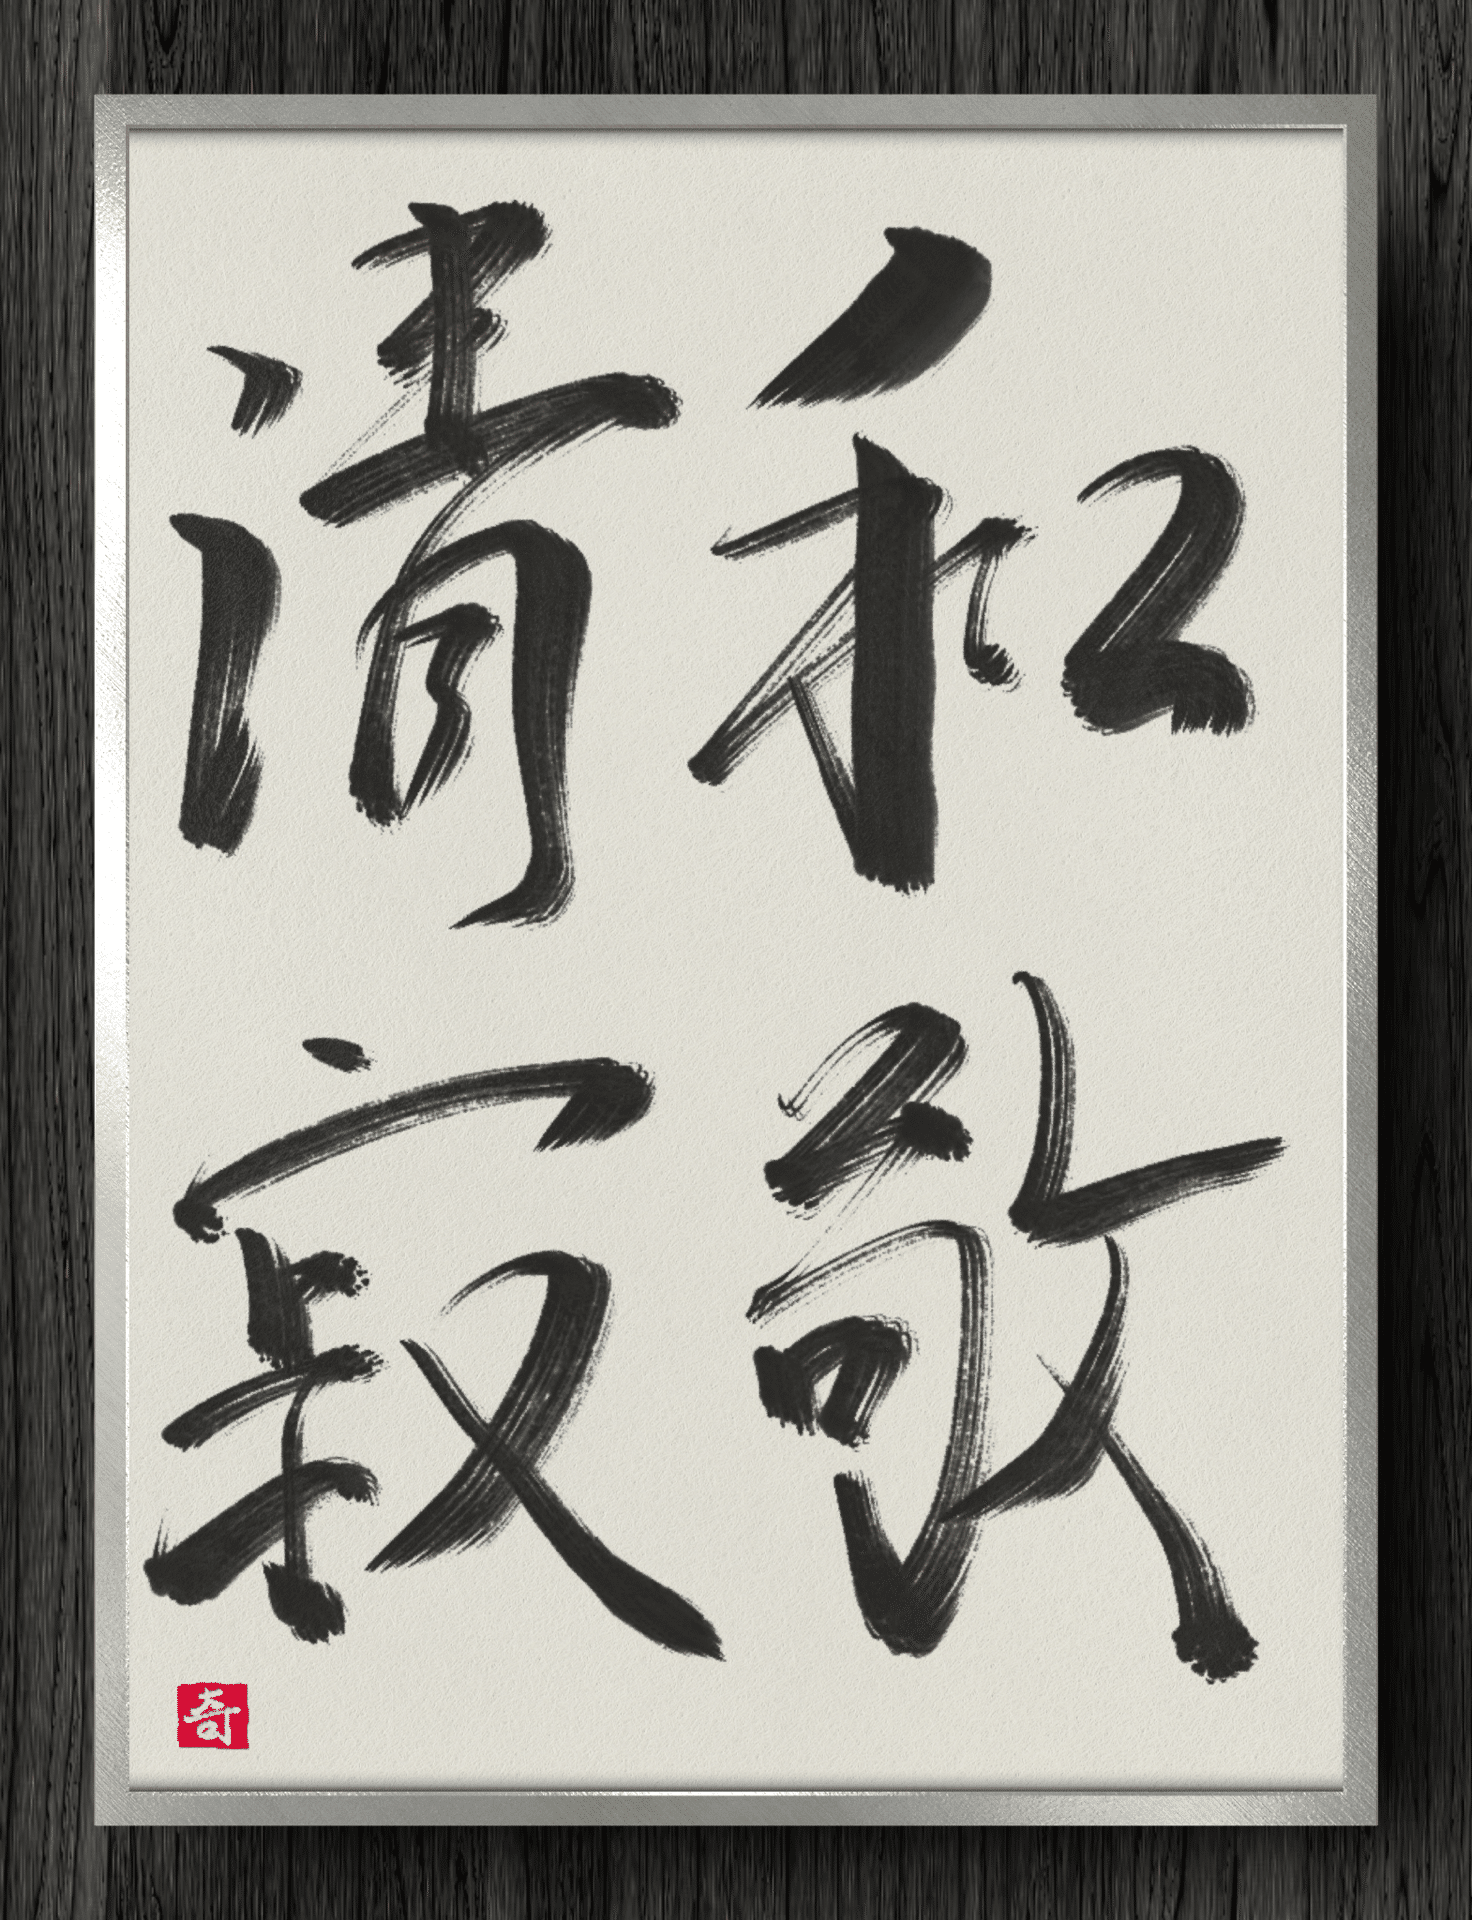 和敬
清寂
奇